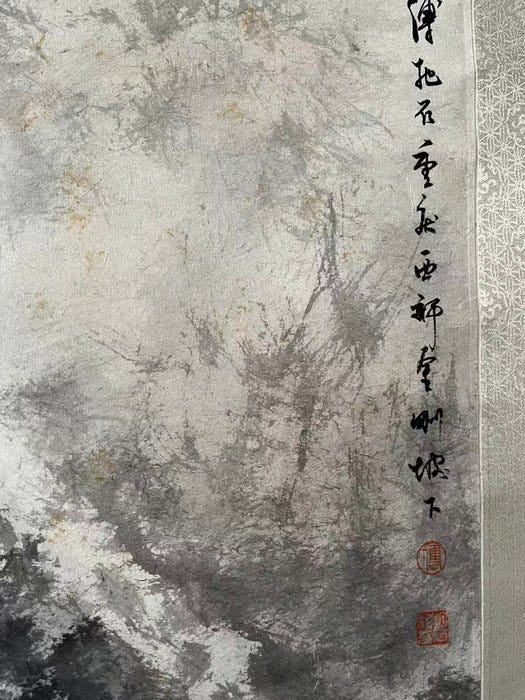 傅抱石重慶西郊金剛坡下
傅